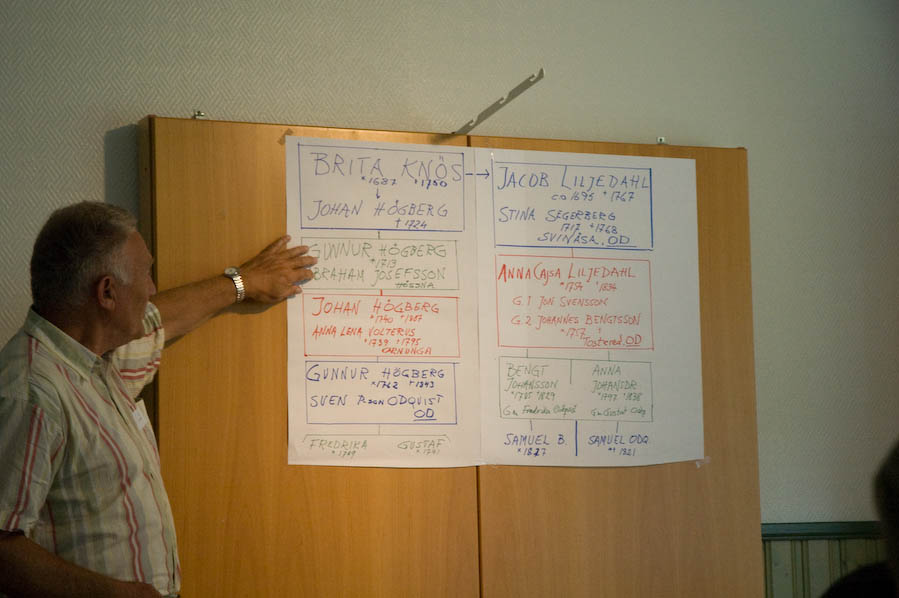 BRITA KNÖS
*1687 +1750
JOHAN HÖGBERG
+1724
GUNNUR HÖGBERG
*1713
ABRAHAM JOSEFSSON
HÖSSNA
JOHAN HÖGBERG
*1740 +1807
ANNA LENA VOLTERUS
*1739 +1795
KARNUNGA
GUNNUR HÖGBERG
*1762 +1843
SVEN P:SON ODQVIST
OD
FREDRIKA
GUSTAF
JACOB LILJEDAHL
ca 1695 +1767
STINA SEGERBERG
1717 +1768
SVINÅSA, OD
ANNA CAJSA LILJEDAHL
*1754 +1834
G.1 JON SVENSSON
G.2 JOHANNES BENGTSSON
*1757 +
OD
BENGT
JOHANSSON
*1785 1829
G.m Fredrika
ANNA
JOHANSDR
*1797 +1838
G.m Gustaf
SAMUEL B.
*1827
SAMUEL ODQ
1821